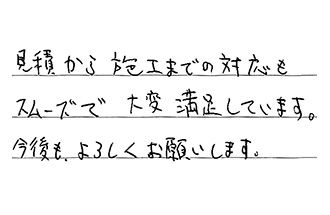 見積から施工までの対応も
スムーズで 大変満足しています。
今後も、よろしくお願いします。